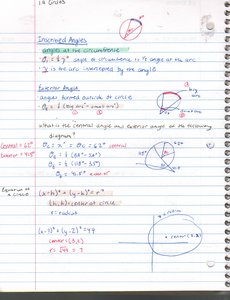 1.9 Circles
Inscribed Angles
angles at the circumference
θ₁ = ½ y° angle @ circumference is ½ angle at the arc
y is the arc intercepted by the angle
Exterior Angle
angles formed outside of circle
θₑ = ½ (big arc - small arc)
big arc
small arc
What is the central angle and exterior angle on the following
diagram?
central = 62°
exterior =
θc = x° = θc = 62° central
θₑ = ½
θₑ = ½
θₑ =
Equation of a circle
(x-h)² + (y-k)² = r²
(h,k) = center of circle
r = radius
(x-3)² + (y-2)² = 49
center = (3,2)
r = √49 = 7
7 = radius
center (3,2)